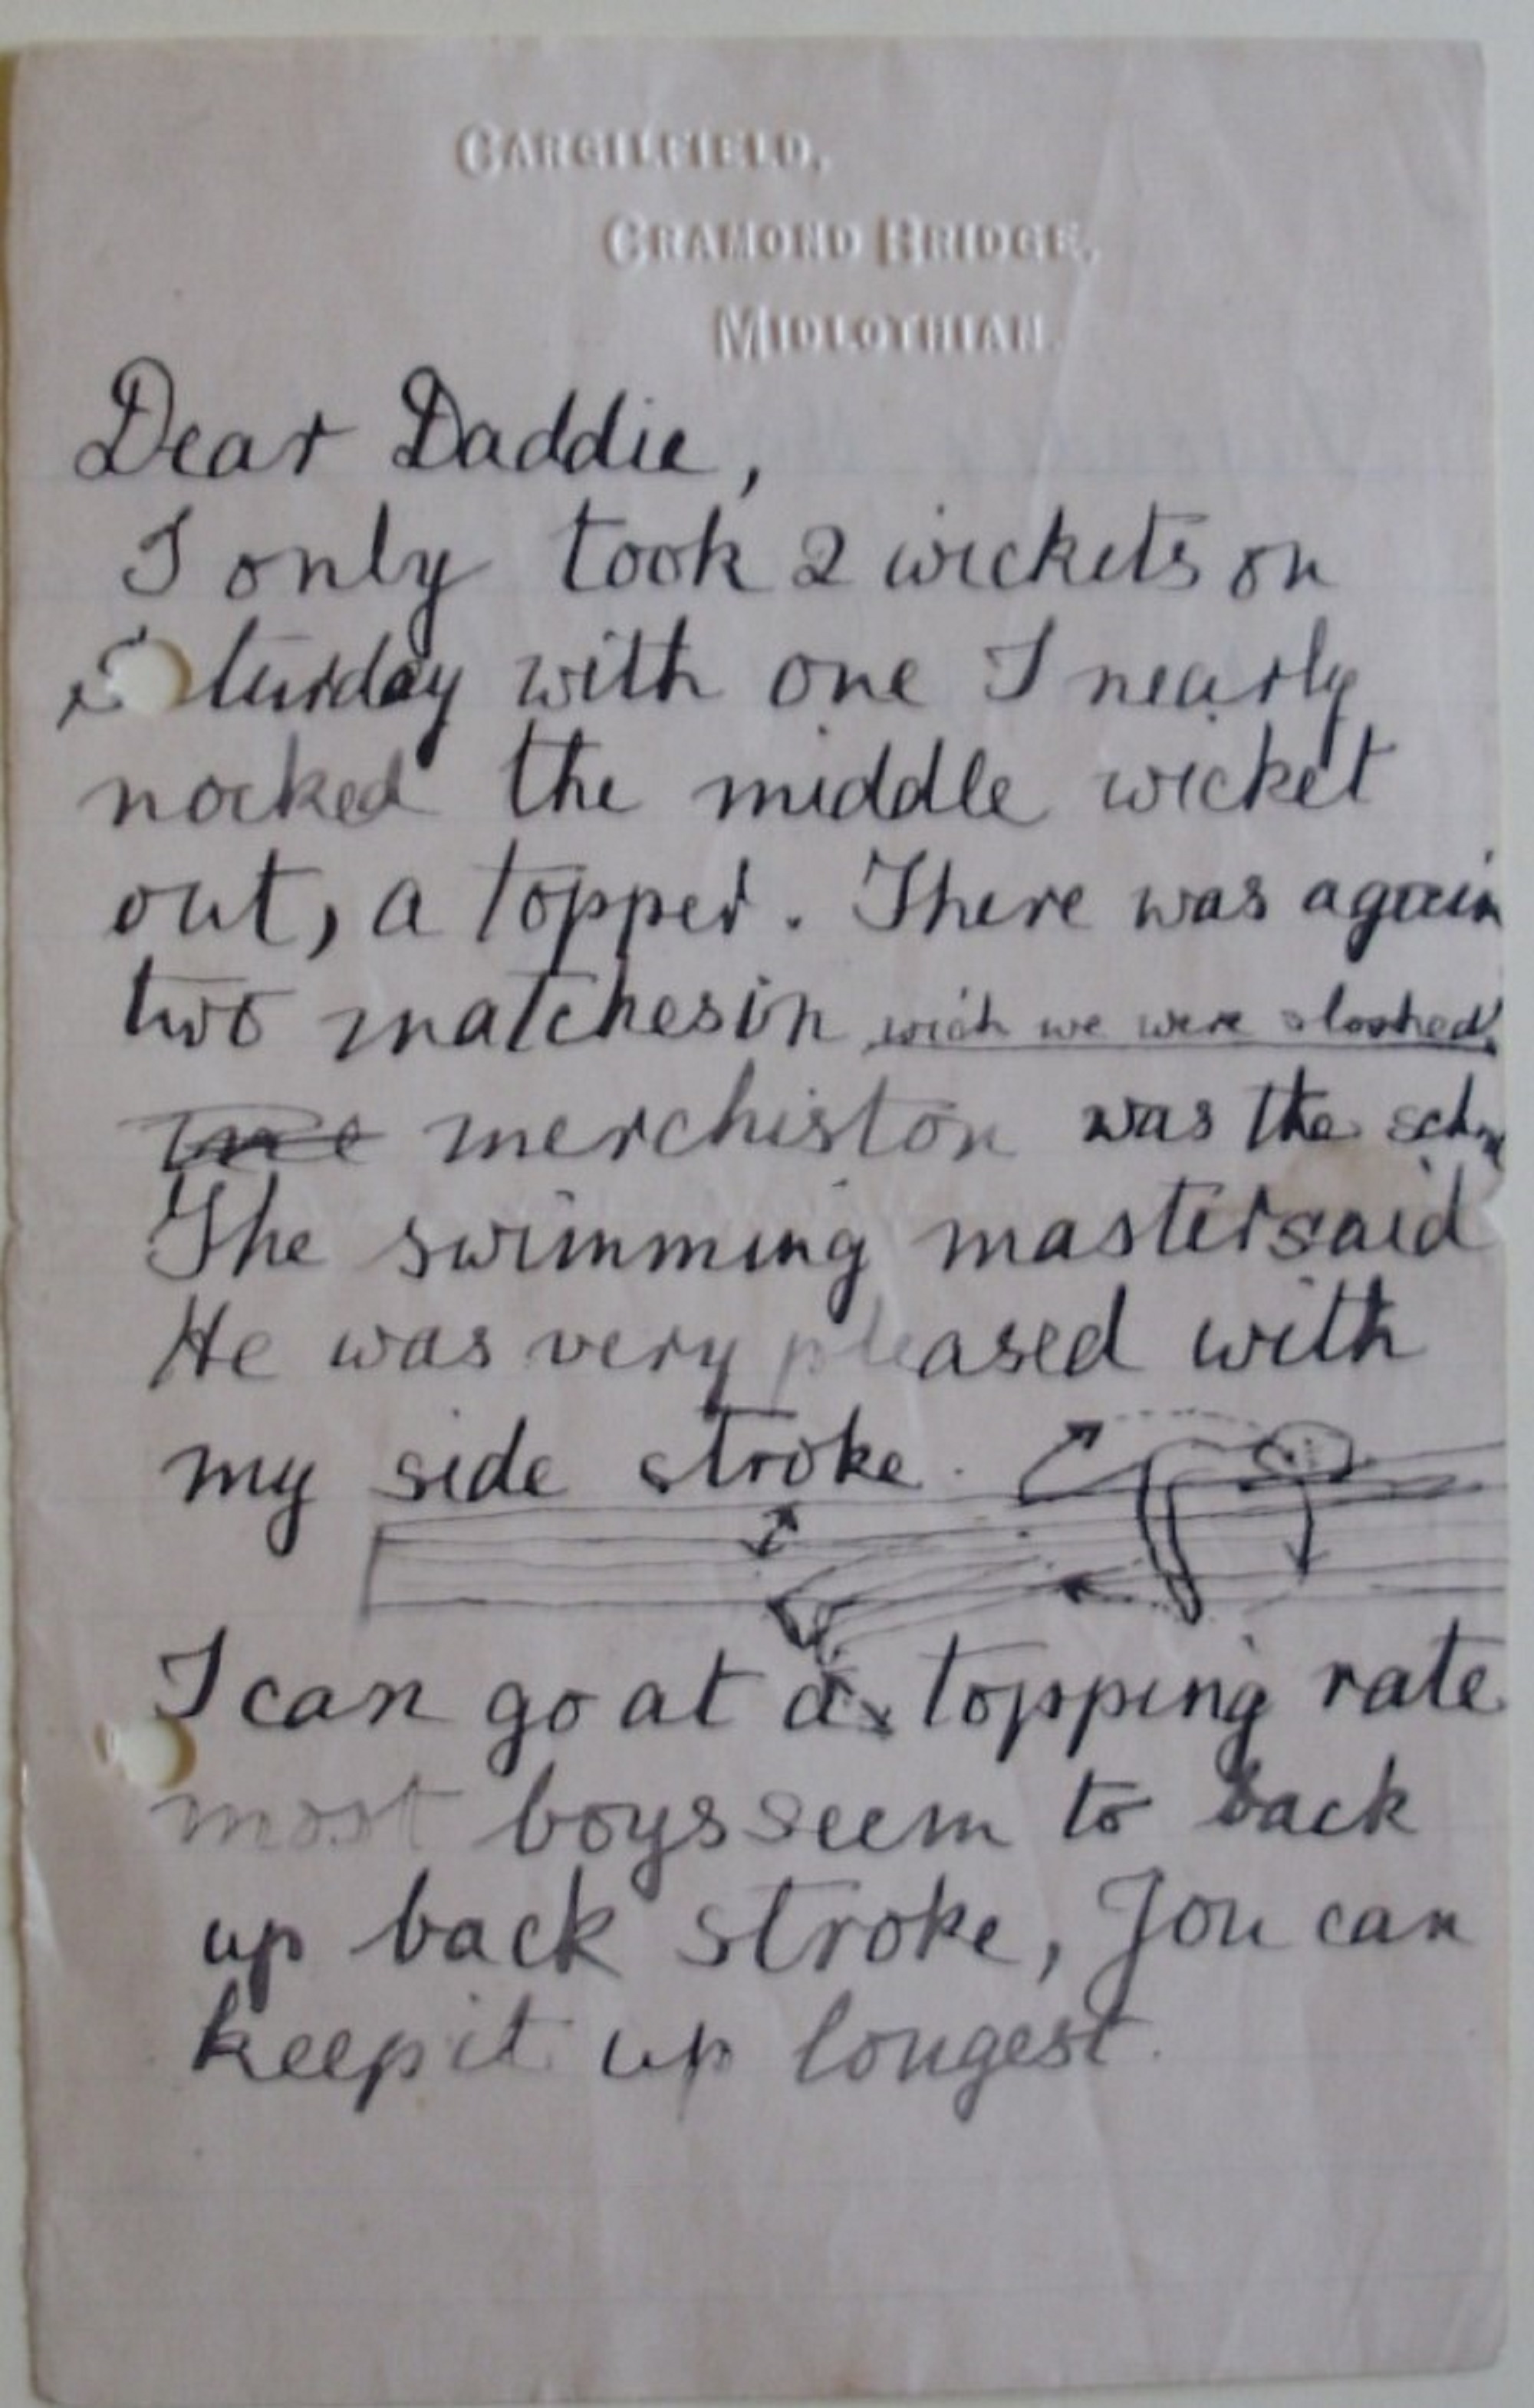 CARGILFIELD,
CRAMOND BRIDGE,
MIDLOTHIAN.
Dear Daddie,
I only took 2 wickets on
Saturday with one I nearly
nocked the middle wicket
out, a topper. There was again
two matches in wich we were sloshed.
merchiston was the
The swimming master said
He was very pleased with
my side stroke.
I can go at a topping rate
most boys seem to back
up back stroke, You can
keep it up longest.